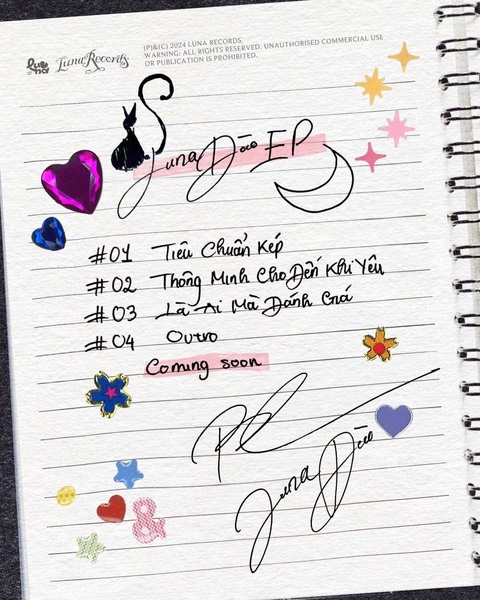 Luna Records
(P)&(C) 2024 LUNA RECORDS.
WARNING: ALL RIGHTS RESERVED. UNAUTHORISED COMMERCIAL USE
OR PUBLICATION IS PROHIBITED.
Luna Đào EP
#01 Tiêu Chuẩn Kép
#02 Thông Minh Cho Đến Khi Yêu
#03 Là Ai Mà Đánh Giá
#04 Outro
Coming soon
Luna Đào
&